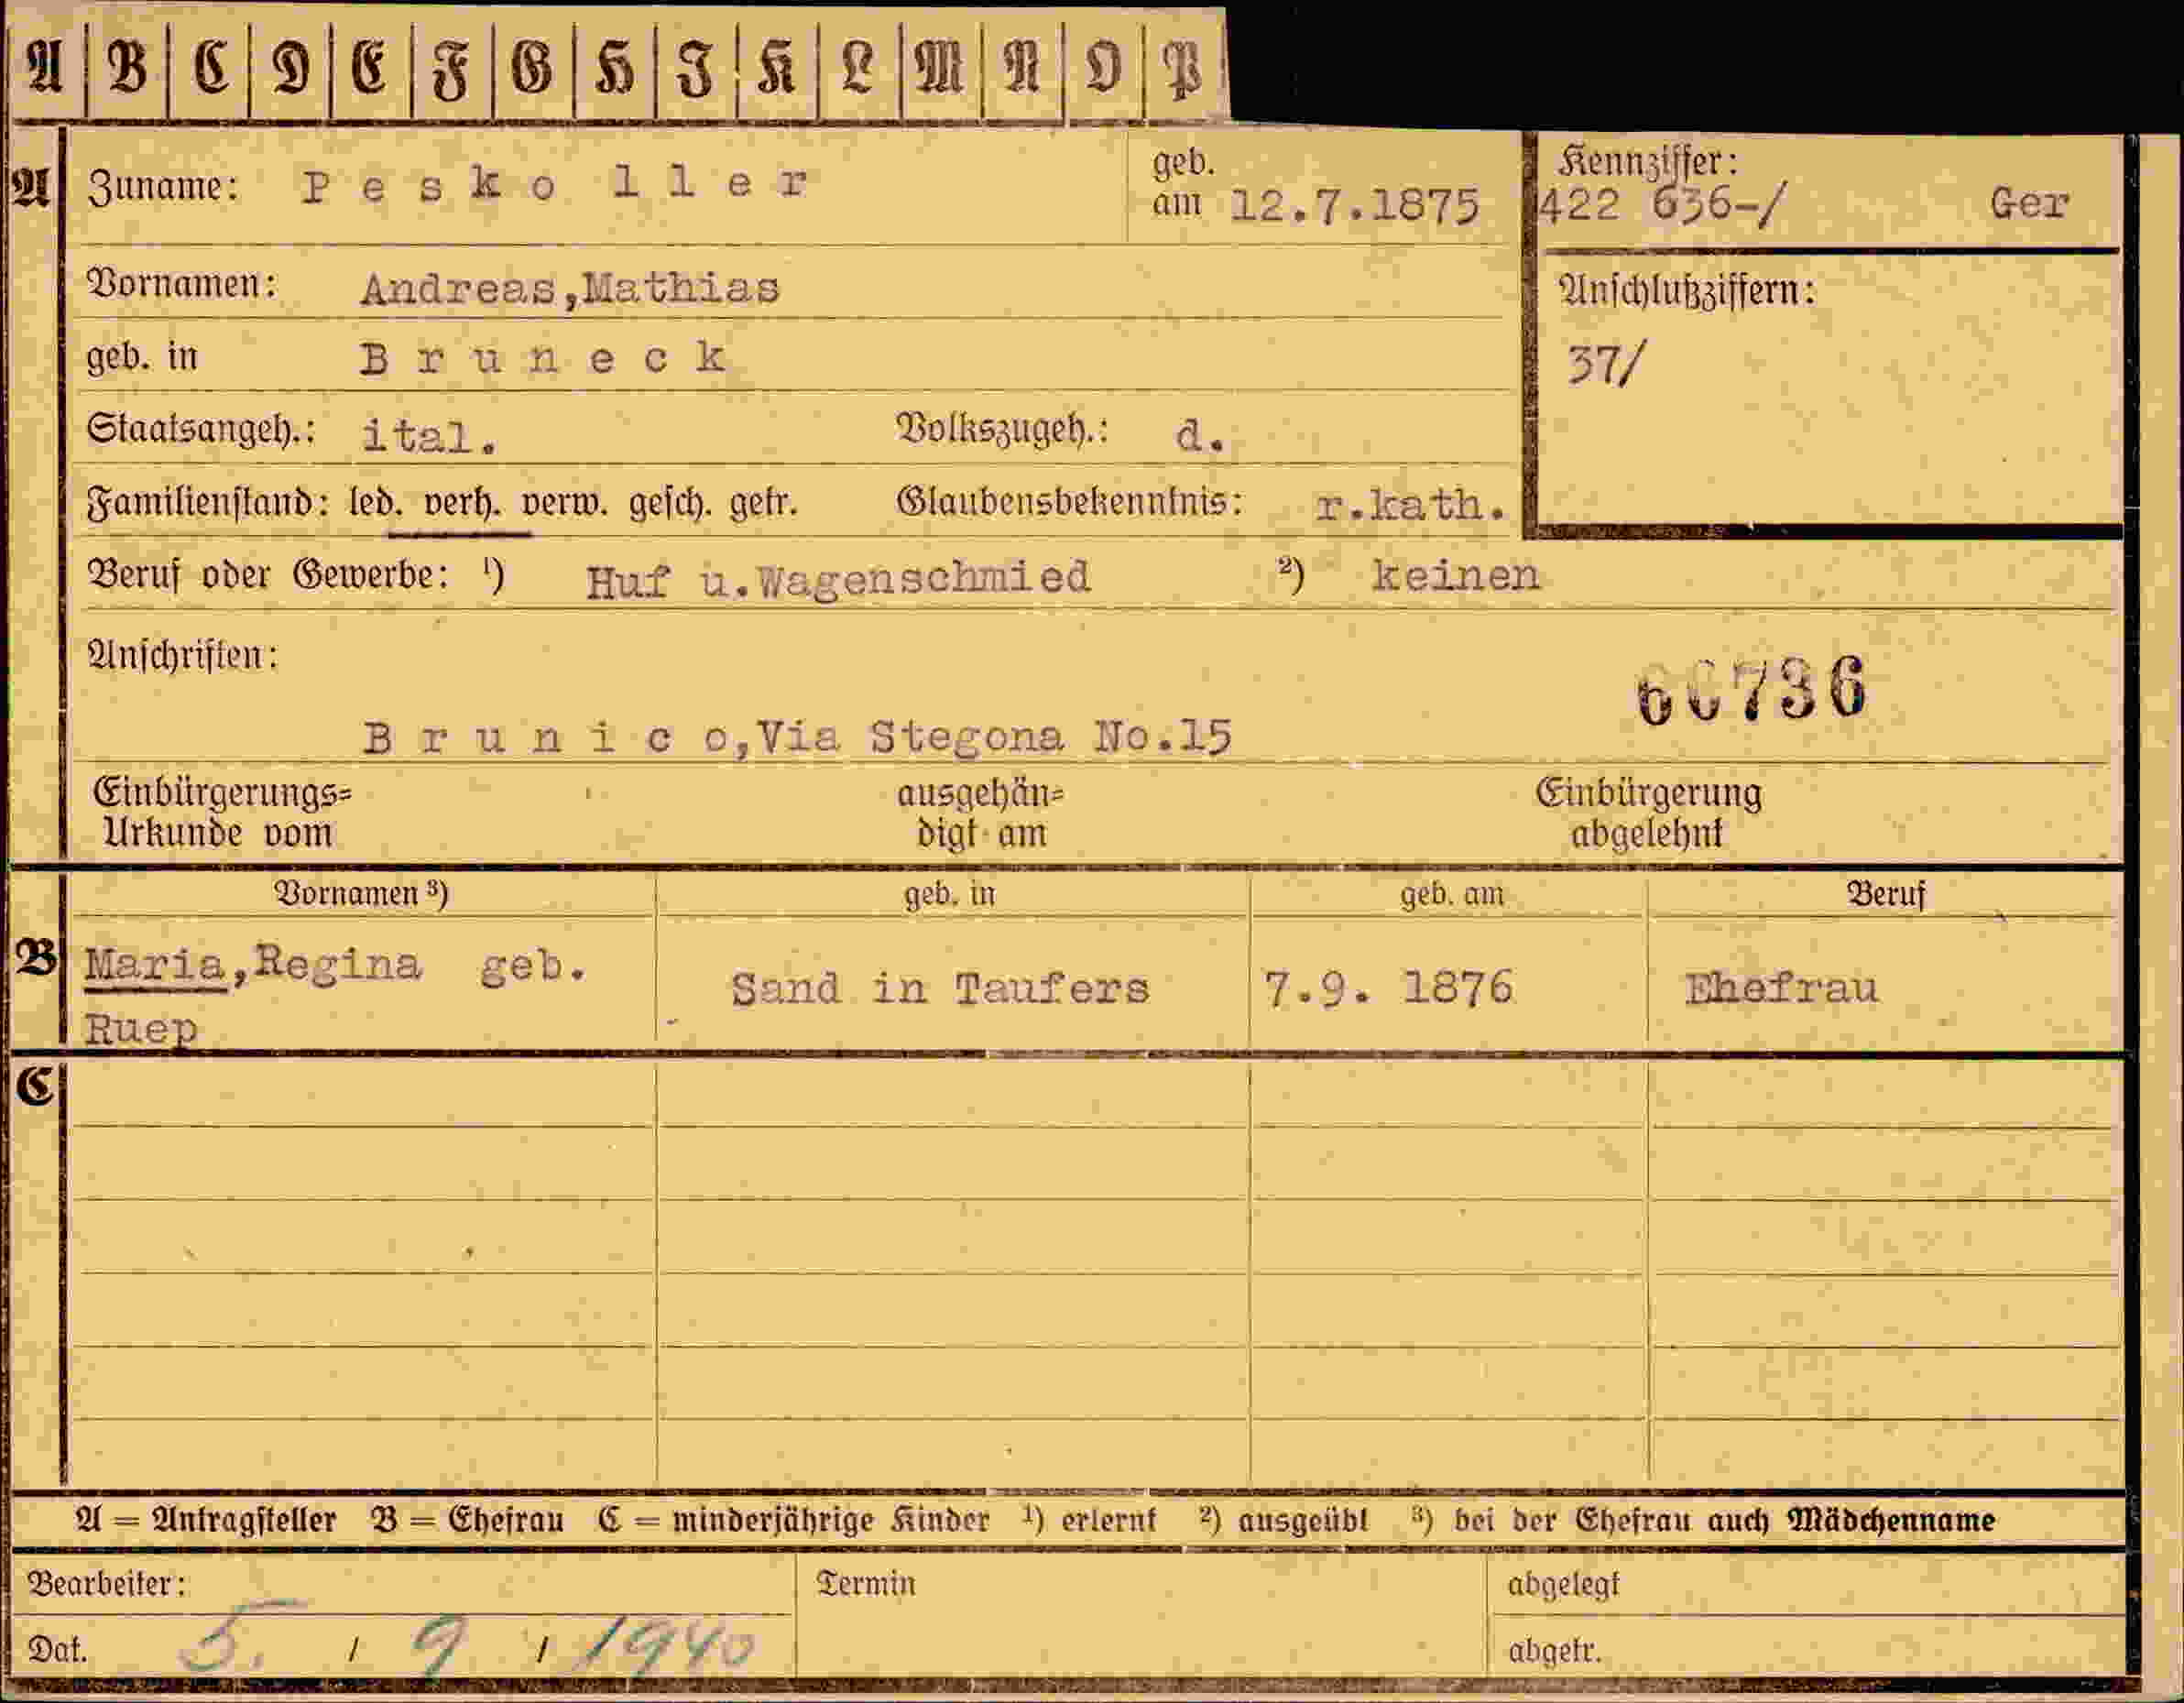 A B C D E F G H J K L M N O P
A Zuname: P e s k o l l e r geb. am 12.7.1875
Kennziffer:
422 636-/ Ger
Vornamen: Andreas,Mathias
Anschlußziffern:
37/
geb. in B r u n e c k
Staatsangeh.: ital. Volkszugeh.: d.
Familienstand: led. verh. verw. gesch. getr. Glaubensbekenntnis: r.kath.
Beruf oder Gewerbe: ¹) Huf u.Wagenschmied ²) keinen
Anschriften:
66736
B r u n i c o,Via Stegona No.15
Einbürgerungs= ausgehän= Einbürgerung
Urkunde vom digt am abgelehnt
Vornamen ³) geb. in geb. am Beruf
B Maria,Regina geb.
Ruep
Sand in Taufers 7.9. 1876 Ehefrau
C
A = Antragsteller B = Ehefrau C = minderjährige Kinder ¹) erlernt ²) ausgeübt ³) bei der Ehefrau auch Mädchenname
Bearbeiter: Termin abgelegt
Dat. 5. / 9 / 1940 abgetr.